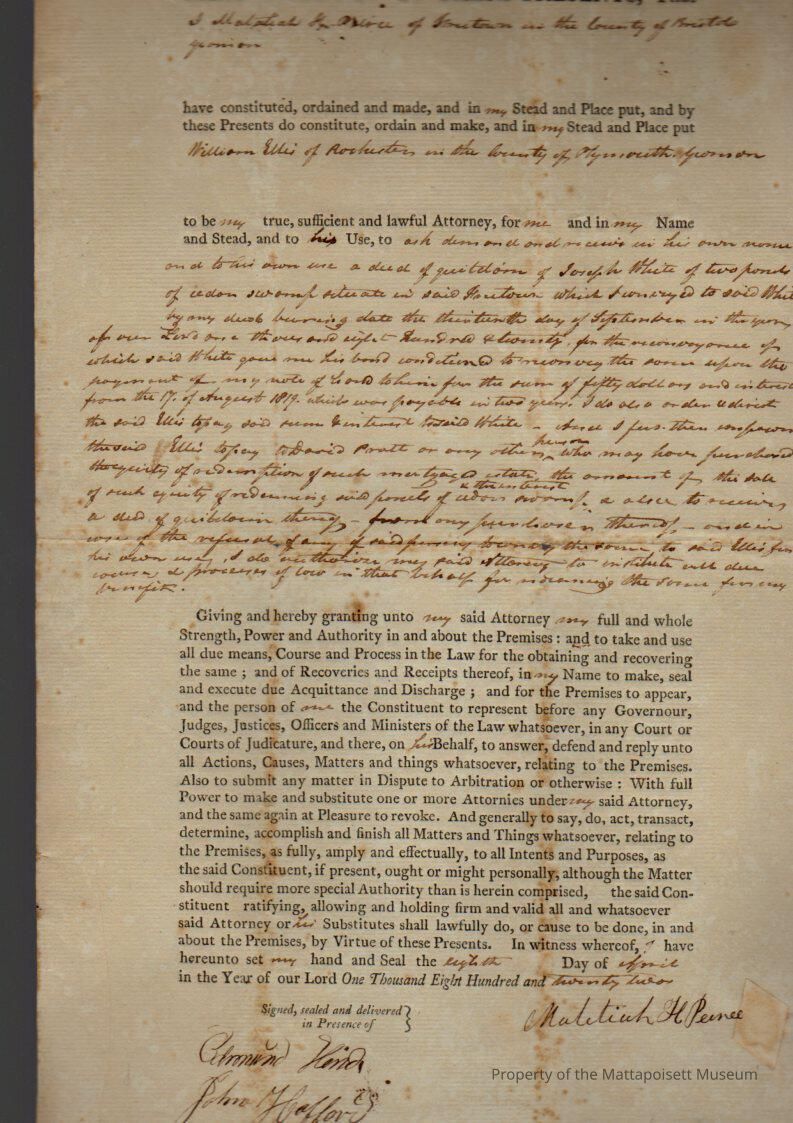 I Malatiah H Peirce of Freetown in the County of Bristol
yeoman
have constituted, ordained and made, and in my Stead and Place put, and by
these Presents do constitute, ordain and make, and in my Stead and Place put
William Ellis of Rochester in the County of Plymouth yeoman
to be my true, sufficient and lawful Attorney, for me and in my Name
and Stead, and to his Use, to ask demand and receive in his own name
and to his own use a deed of quitclaim of Joseph White of two parcels
of cedar swamp situate in said Freetown which I conveyed to said White
by my deed bearing date the thirteenth day of September in the year
of our Lord one thousand eight Hundred & twenty, for the reconveyance of
which said White gave me his bond conditioned to reconvey the same upon the
payment of my note of hand to him for the sum of fifty dollars and interest
from the 17. of August 1819. which was payable in two years I do also order & direct
the said Ellis to pay said sum & interest to said White - And I further empower
the said Ellis to pay to David Pratt or any other person who may have purchased
the equity of redemption of such mortgaged estate, the amount of the sale
& the interest
of such equity of redeeming said parcels of cedar swamp, & also to receive
a deed of quitclaim thereof - from any purchaser thereof - and in
case of the refusal of any of said persons to convey the same to said Ellis for
his own use, I do authorize my said Attorney to institute all due
course, & processes of law in that behalf for recovering the same for my
benefit.
Giving and hereby granting unto my said Attorney my full and whole
Strength, Power and Authority in and about the Premises : and to take and use
all due means, Course and Process in the Law for the obtaining and recovering
the same ; and of Recoveries and Receipts thereof, in my Name to make, seal
and execute due Acquittance and Discharge ; and for the Premises to appear,
and the person of me the Constituent to represent before any Governour,
Judges, Justices, Officers and Ministers of the Law whatsoever, in any Court or
Courts of Judicature, and there, on his Behalf, to answer, defend and reply unto
all Actions, Causes, Matters and things whatsoever, relating to the Premises.
Also to submit any matter in Dispute to Arbitration or otherwise : With full
Power to make and substitute one or more Attornies under my said Attorney,
and the same again at Pleasure to revoke. And generally to say, do, act, transact,
determine, accomplish and finish all Matters and Things whatsoever, relating to
the Premises, as fully, amply and effectually, to all Intents and Purposes, as
the said Constituent, if present, ought or might personally, although the Matter
should require more special Authority than is herein comprised, the said Con-
stituent ratifying, allowing and holding firm and valid all and whatsoever
said Attorney or his Substitutes shall lawfully do, or cause to be done, in and
about the Premises, by Virtue of these Presents. In witness whereof, I have
hereunto set my hand and Seal the eighth Day of April
in the Year of our Lord One Thousand Eight Hundred and twenty two
Signed, sealed and delivered
in Presence of
Malatiah H Peirce
John
Property of the Mattapoisett Museum